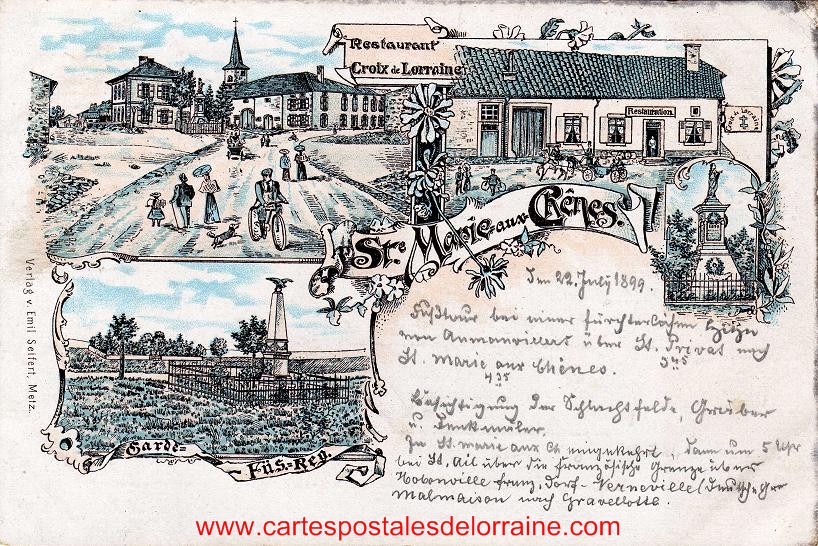 Restaurant
Croix de Lorraine
Restauration
Croix de Lorraine
Ste Marie-aux-Chênes.
Im 22. July 1899.
Fußtour bei einer fürchterlichen Hitze
von Amanvillers über St. Privat nach
3 45
St. Marie aux Chênes.
4 35
Besichtigung der Schlachtfelde, Gräber
u. Denkmäler.
In St. marie aux Ch eingekehrt, dann um 5 Uhr
bei St. Ail über die französische Grenze über
franz. Dorf - Verneville (Deutsche
Malmaison nach Gravellotte.
Garde-
Füs.=Reg.
Verlag v. Emil Seifert, Metz.
www.cartespostalesdelorraine.com